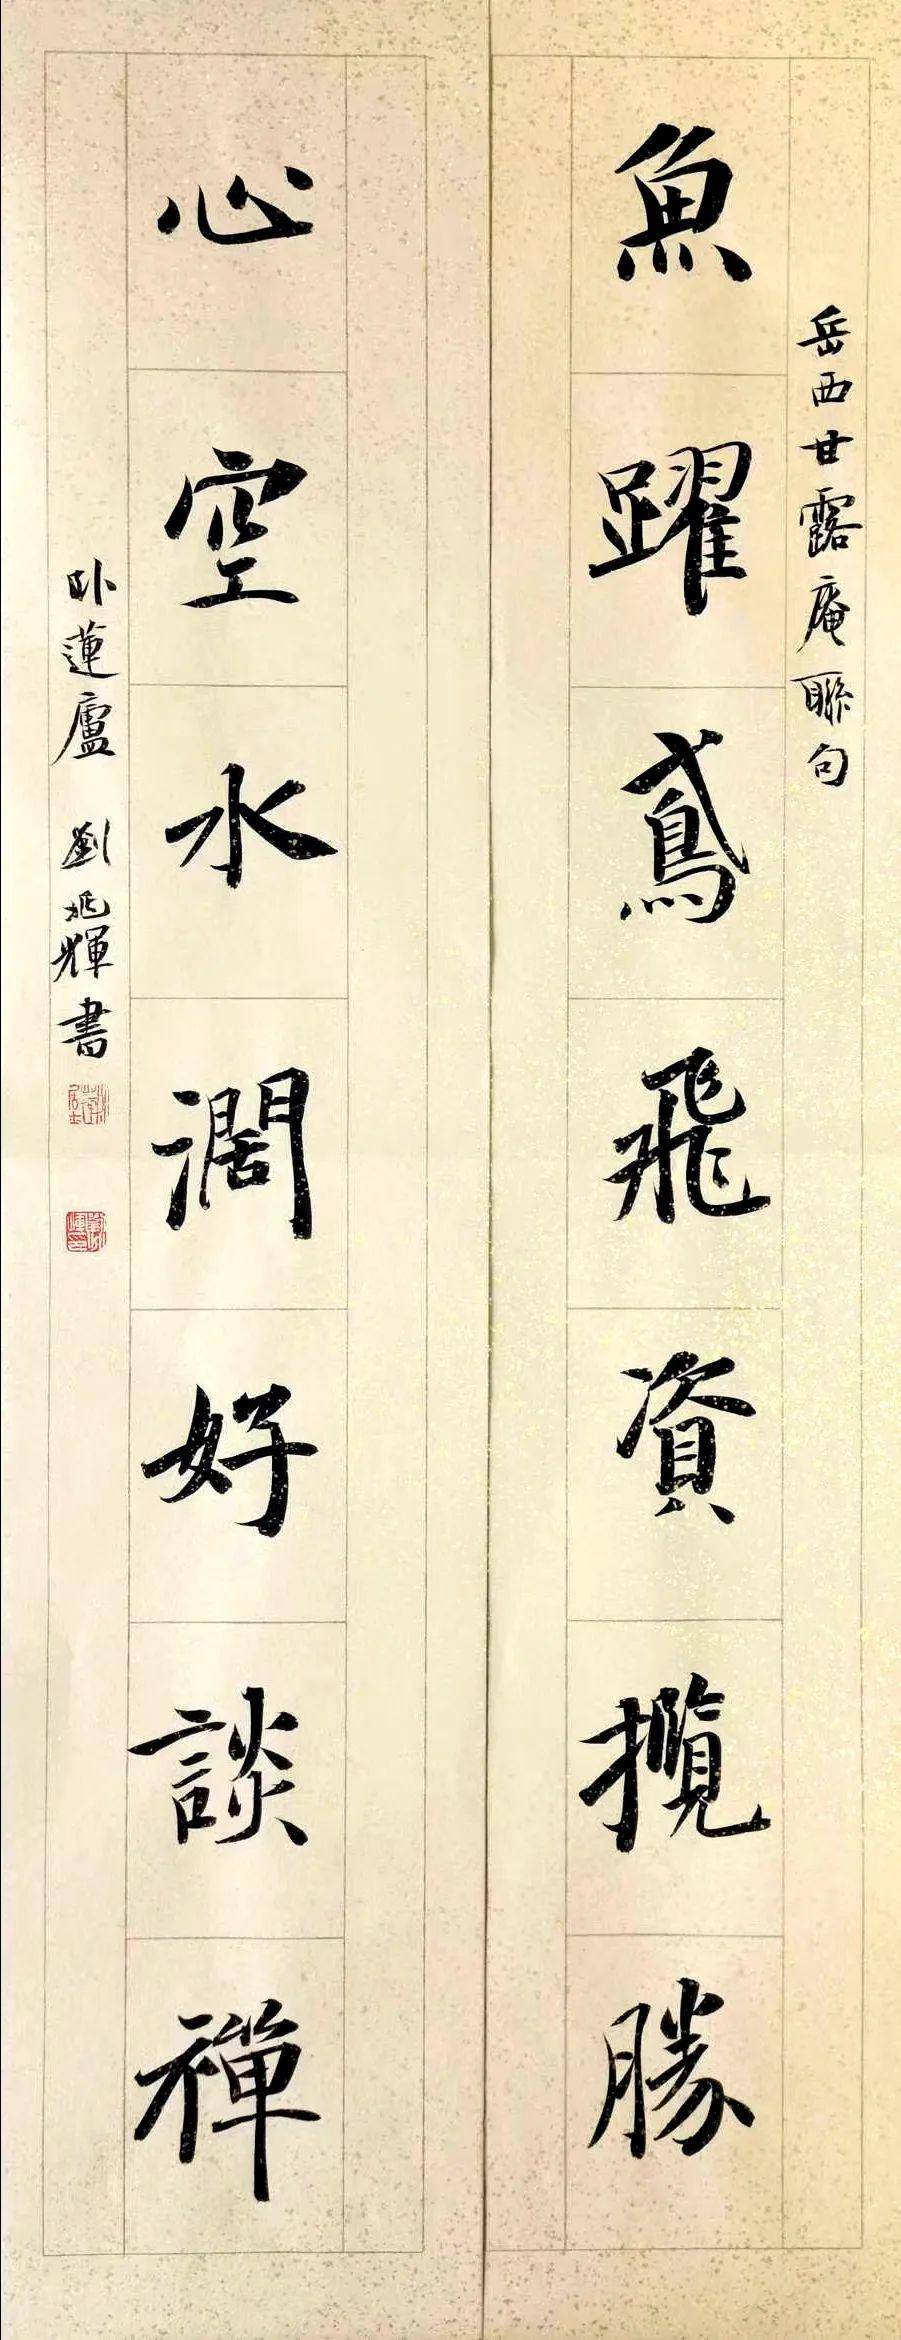 岳西甘露庵聯句
魚躍鳶飛資攬勝
心空水濶好談禪
卧蓮廬 劉兆輝書